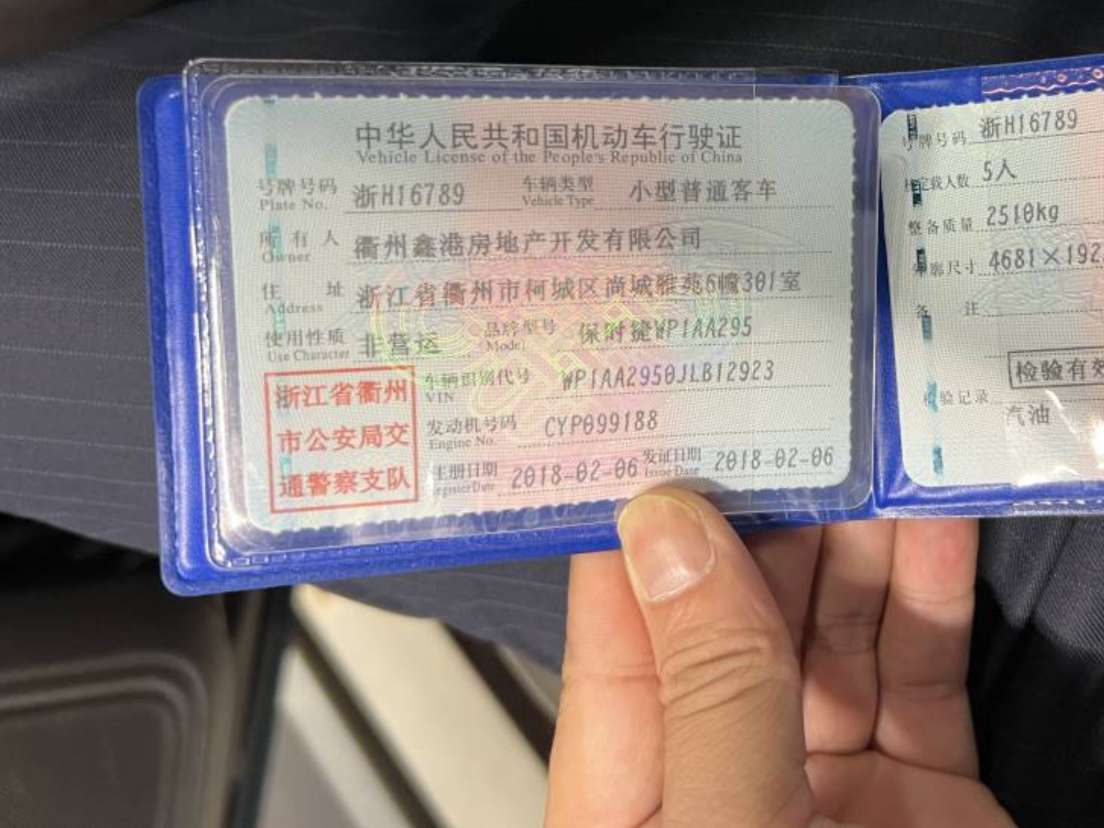 中华人民共和国机动车行驶证
Vehicle License of the People's Republic of China
号牌号码 浙H16789 车辆类型 小型普通客车
Plate No. Vehicle Type
所有人 衢州鑫港房地产开发有限公司
Owner
住址 浙江省衢州市柯城区尚城雅苑6幢301室
Address
使用性质 非营运 品牌型号 保时捷WP1AA295
Use Character Model
浙江省衢州
市公安局交
通警察支队
车辆识别代号 WP1AA2950JLB12923
VIN
发动机号码 CYP099188
Engine No.
注册日期 2018-02-06 发证日期 2018-02-06
Register Date Issue Date
号牌号码 浙H16789
核定载人数 5人
整备质量 2510kg
外廓尺寸 4681×192
备注
检验有效
检验记录
汽油